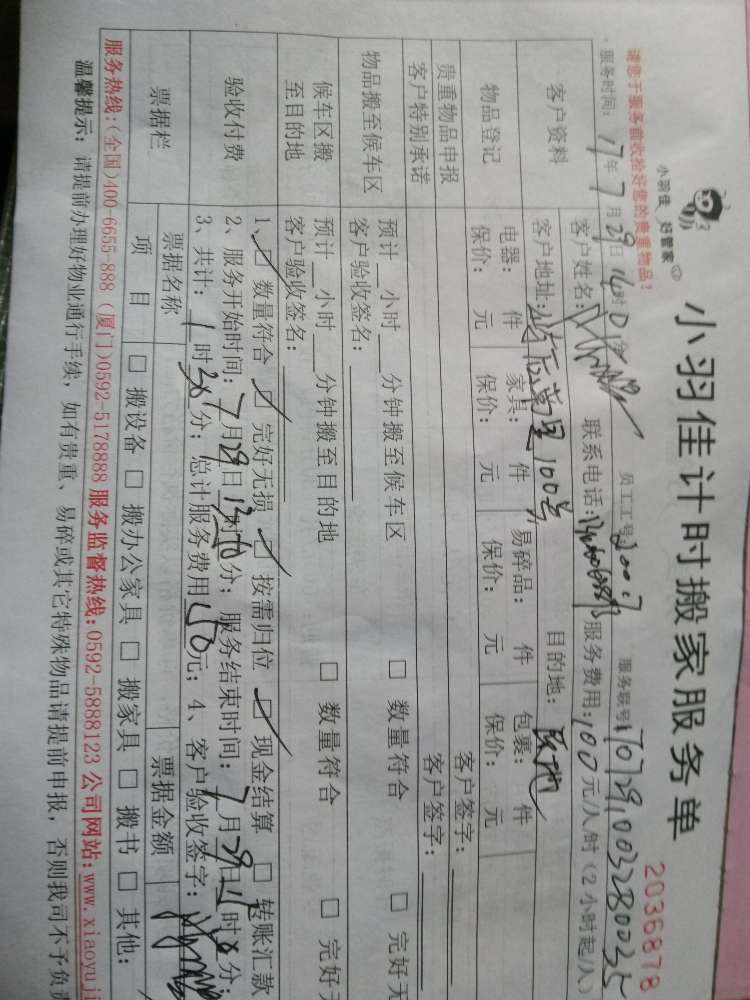 小羽佳计时搬家服务单
2036878
小羽佳 好管家
请您于服务前收拾好您的贵重物品!
服务时间: 17年 7月 29日 14时 0分 员工工号: 服务联号
客户资料 客户姓名: 联系电话: 服务费用:100元/人/时(2小时起/人)
客户地址: 100号 目的地:
物品登记 电器: 件 家具: 件 易碎品: 件 包裹: 件
保价: 元 保价: 元 保价: 元 保价: 元
贵重物品申报 客户签字:
客户特别承诺 客户签字:
物品搬至候车区 预计 小时 分钟搬至候车区 □ 数量符合 □ 完好无
客户验收签名:
候车区搬至目的地 预计 小时 分钟搬至目的地 □ 数量符合 □ 完好无
客户验收签名:
验收付费 1、□ 数量符合 □ 完好无损 □ 按需归位 □ 现金结算 □ 转账汇款
2、服务开始时间:7月29日 时 分; 服务结束时间:7月29日 时 分;
3、共计:1时 分; 总计服务费用 元; 4、客户验收签字:
票据栏 票据名称 票据金额
项目 □ 搬设备 □ 搬办公家具 □ 搬家具 □ 搬书 □ 其他:
服务热线:(全国)400-6655-888 (厦门)0592-5178888 服务监督热线:0592-5888123 公司网站:www.xiaoyuji
温馨提示: 请提前办理好物业通行手续, 如有贵重、易碎或其它特殊物品请提前申报, 否则我司不予负责